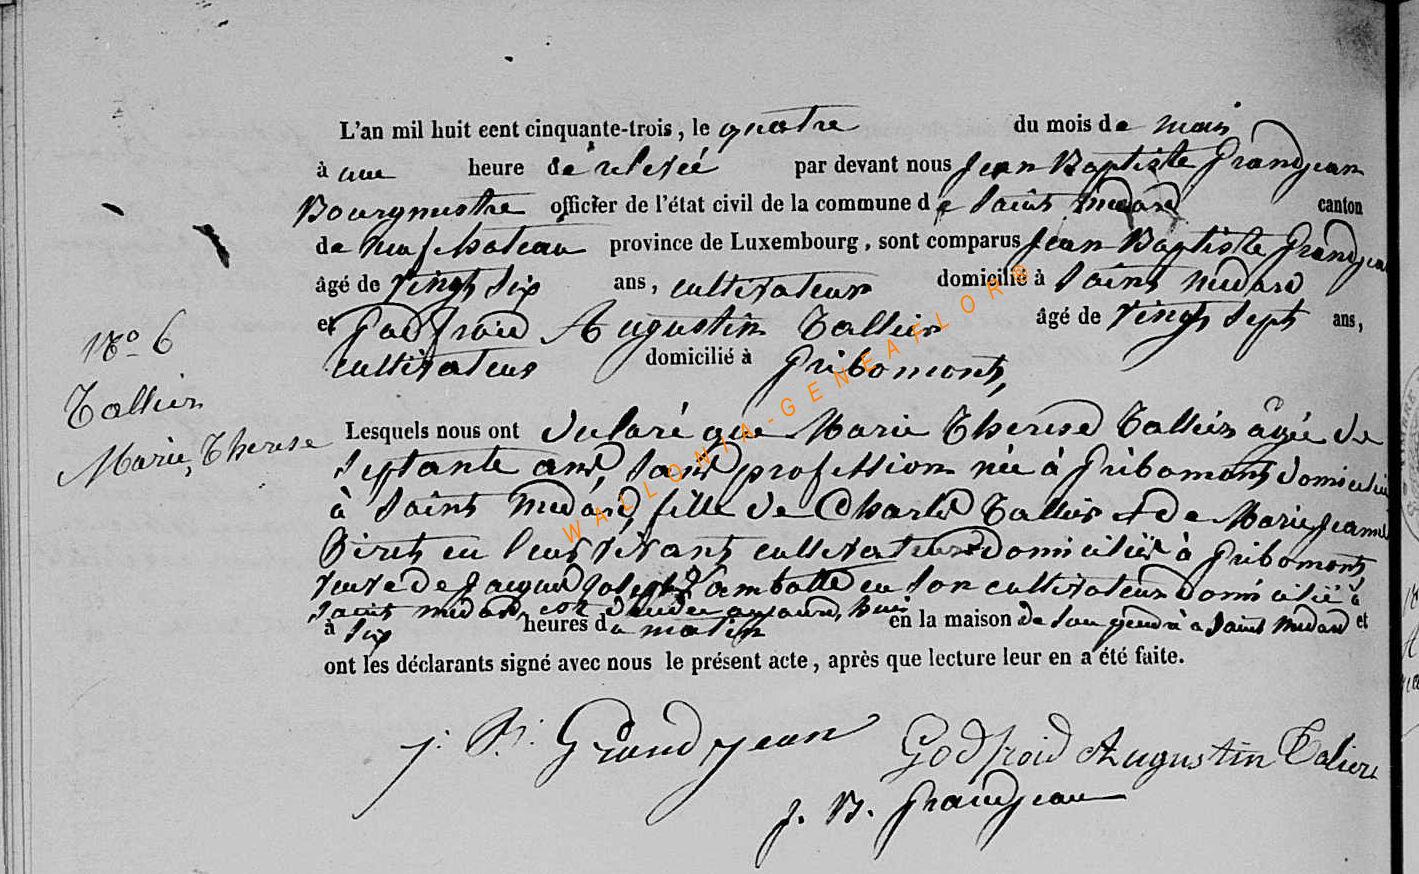 L'an mil huit cent cinquante-trois, le quatre du mois de mai
à une heure de relevée par devant nous Jean Baptiste Grandjean
Bourgmestre officier de l'état civil de la commune de Saint médard canton
de Neufchateau province de Luxembourg, sont comparus Jean Baptiste Grandjean
âgé de Vingt Six ans, cultivateur domicilié à Saint médard
et Godfroid Augustin Tallier âgé de Vingt Sept ans,
cultivateur domicilié à Gribomont,
N° 6
Tallier
Marie, Therese
Lesquels nous ont déclaré que Marie Therese Tallier agée de
Septante ans, Sans profession née à Gribomont domiciliée
à Saint médard, fille de Charles Tallier & de Marie Jeanne
Piret en leur vivant cultivateurs domiciliés à Gribomont
veuve de Jacques Joseph en Son cultivateur domicilié à
Saint médard, est décédée aujourd'hui
à Six heures du matin en la maison de Son gendre à Saint médard et
ont les déclarants signé avec nous le présent acte, après que lecture leur en a été faite.
J. B. Grandjean Godfroid Augustin Talier
J. B. Grandjean
WALLONIA-GENEAFLOR